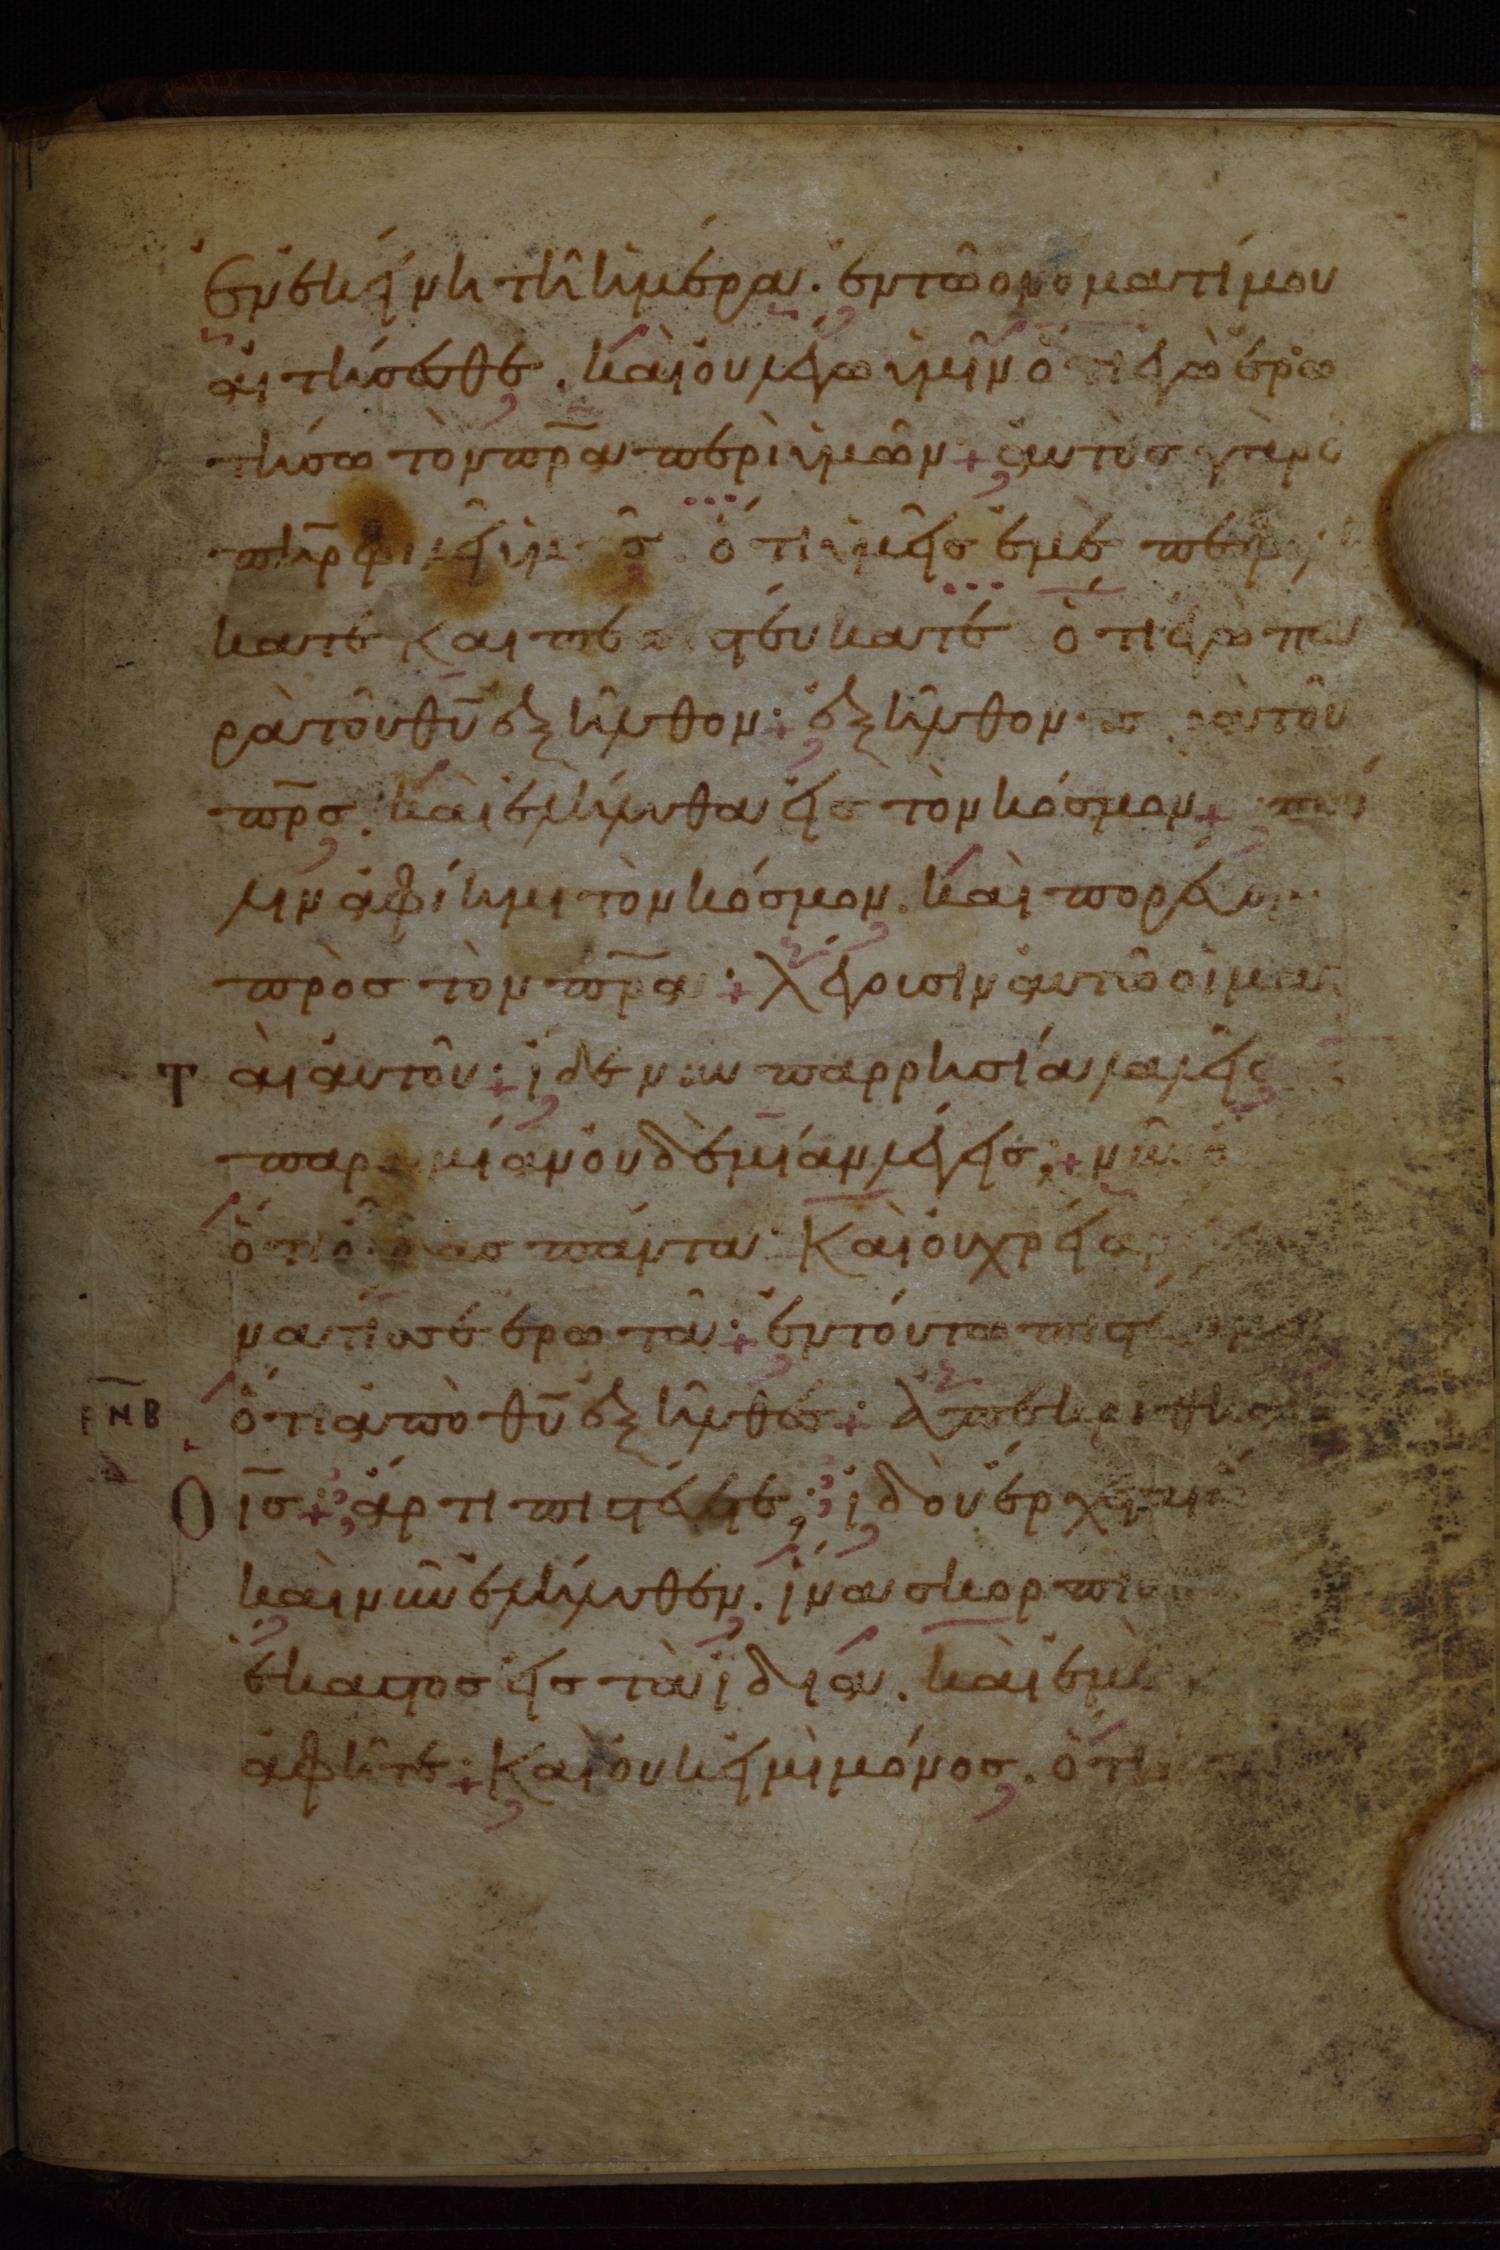 ἐν ἐκείνη τῆ ἡμέρα· ἐν τῶ ονοματί μου
αἰτήσεσθε. καὶ οὐ λέγω ὑμῖν ὅτι ἐγὼ ἐρω
τήσω τὸν πρ̅α περὶ ὑμῶν + αὐτὸσ γὰρ ὁ
πη̅ρ φιλεῖ ὑμᾶσ ὅτι ὑμεῖσ ἐμὲ πεφιλή
κατέ και πεπιστέυκατέ ὅτι ἐγὼ πα
ρὰ τοῦ θυ̅ ἐξῆλθον·+ ἐξῆλθον παρὰ τοῦ
πρ̅σ. καὶ ἐλήλυθα εἰσ τὸν κόσμον + πά
λιν ἀφίημι τὸν κόσμον. καὶ πορεύομαι
πρὸσ τὸν πρ̅α :+ λέγουσιν αὐτῶ ὁι μαθ
Τ αὶ αὐτοῦ:+ ἴδε νῦν παρρησία λαλεῖσ
παροιμίαν οὐδεμίαν λέγεισ.+ νῦν
ὅτι οἶδασ πάντα· Και οὐ χρείαν
ινα τίσ σέ ερωτᾶ·+ ἐν τόυτω πιστεύομεν
ὅτι ἀπὸ θυ̅ ἐξῆλθεσ+: ἀπεκρίθη
Ρ̅Ν̅Β
Ο ι̅σ+: ἄρτι πιστέυετε; ἰδοὺ ἔρχεται ὥ
καὶ νῦν ἐλήλυθεν. ἵνα σκορπισ
ἕκαστοσ εἰσ τὰ ἴδια. καὶ ἐμὲ
ἀφῆτέ:+ Και οὐκ εἰμὶ μόνοσ. ὅτι